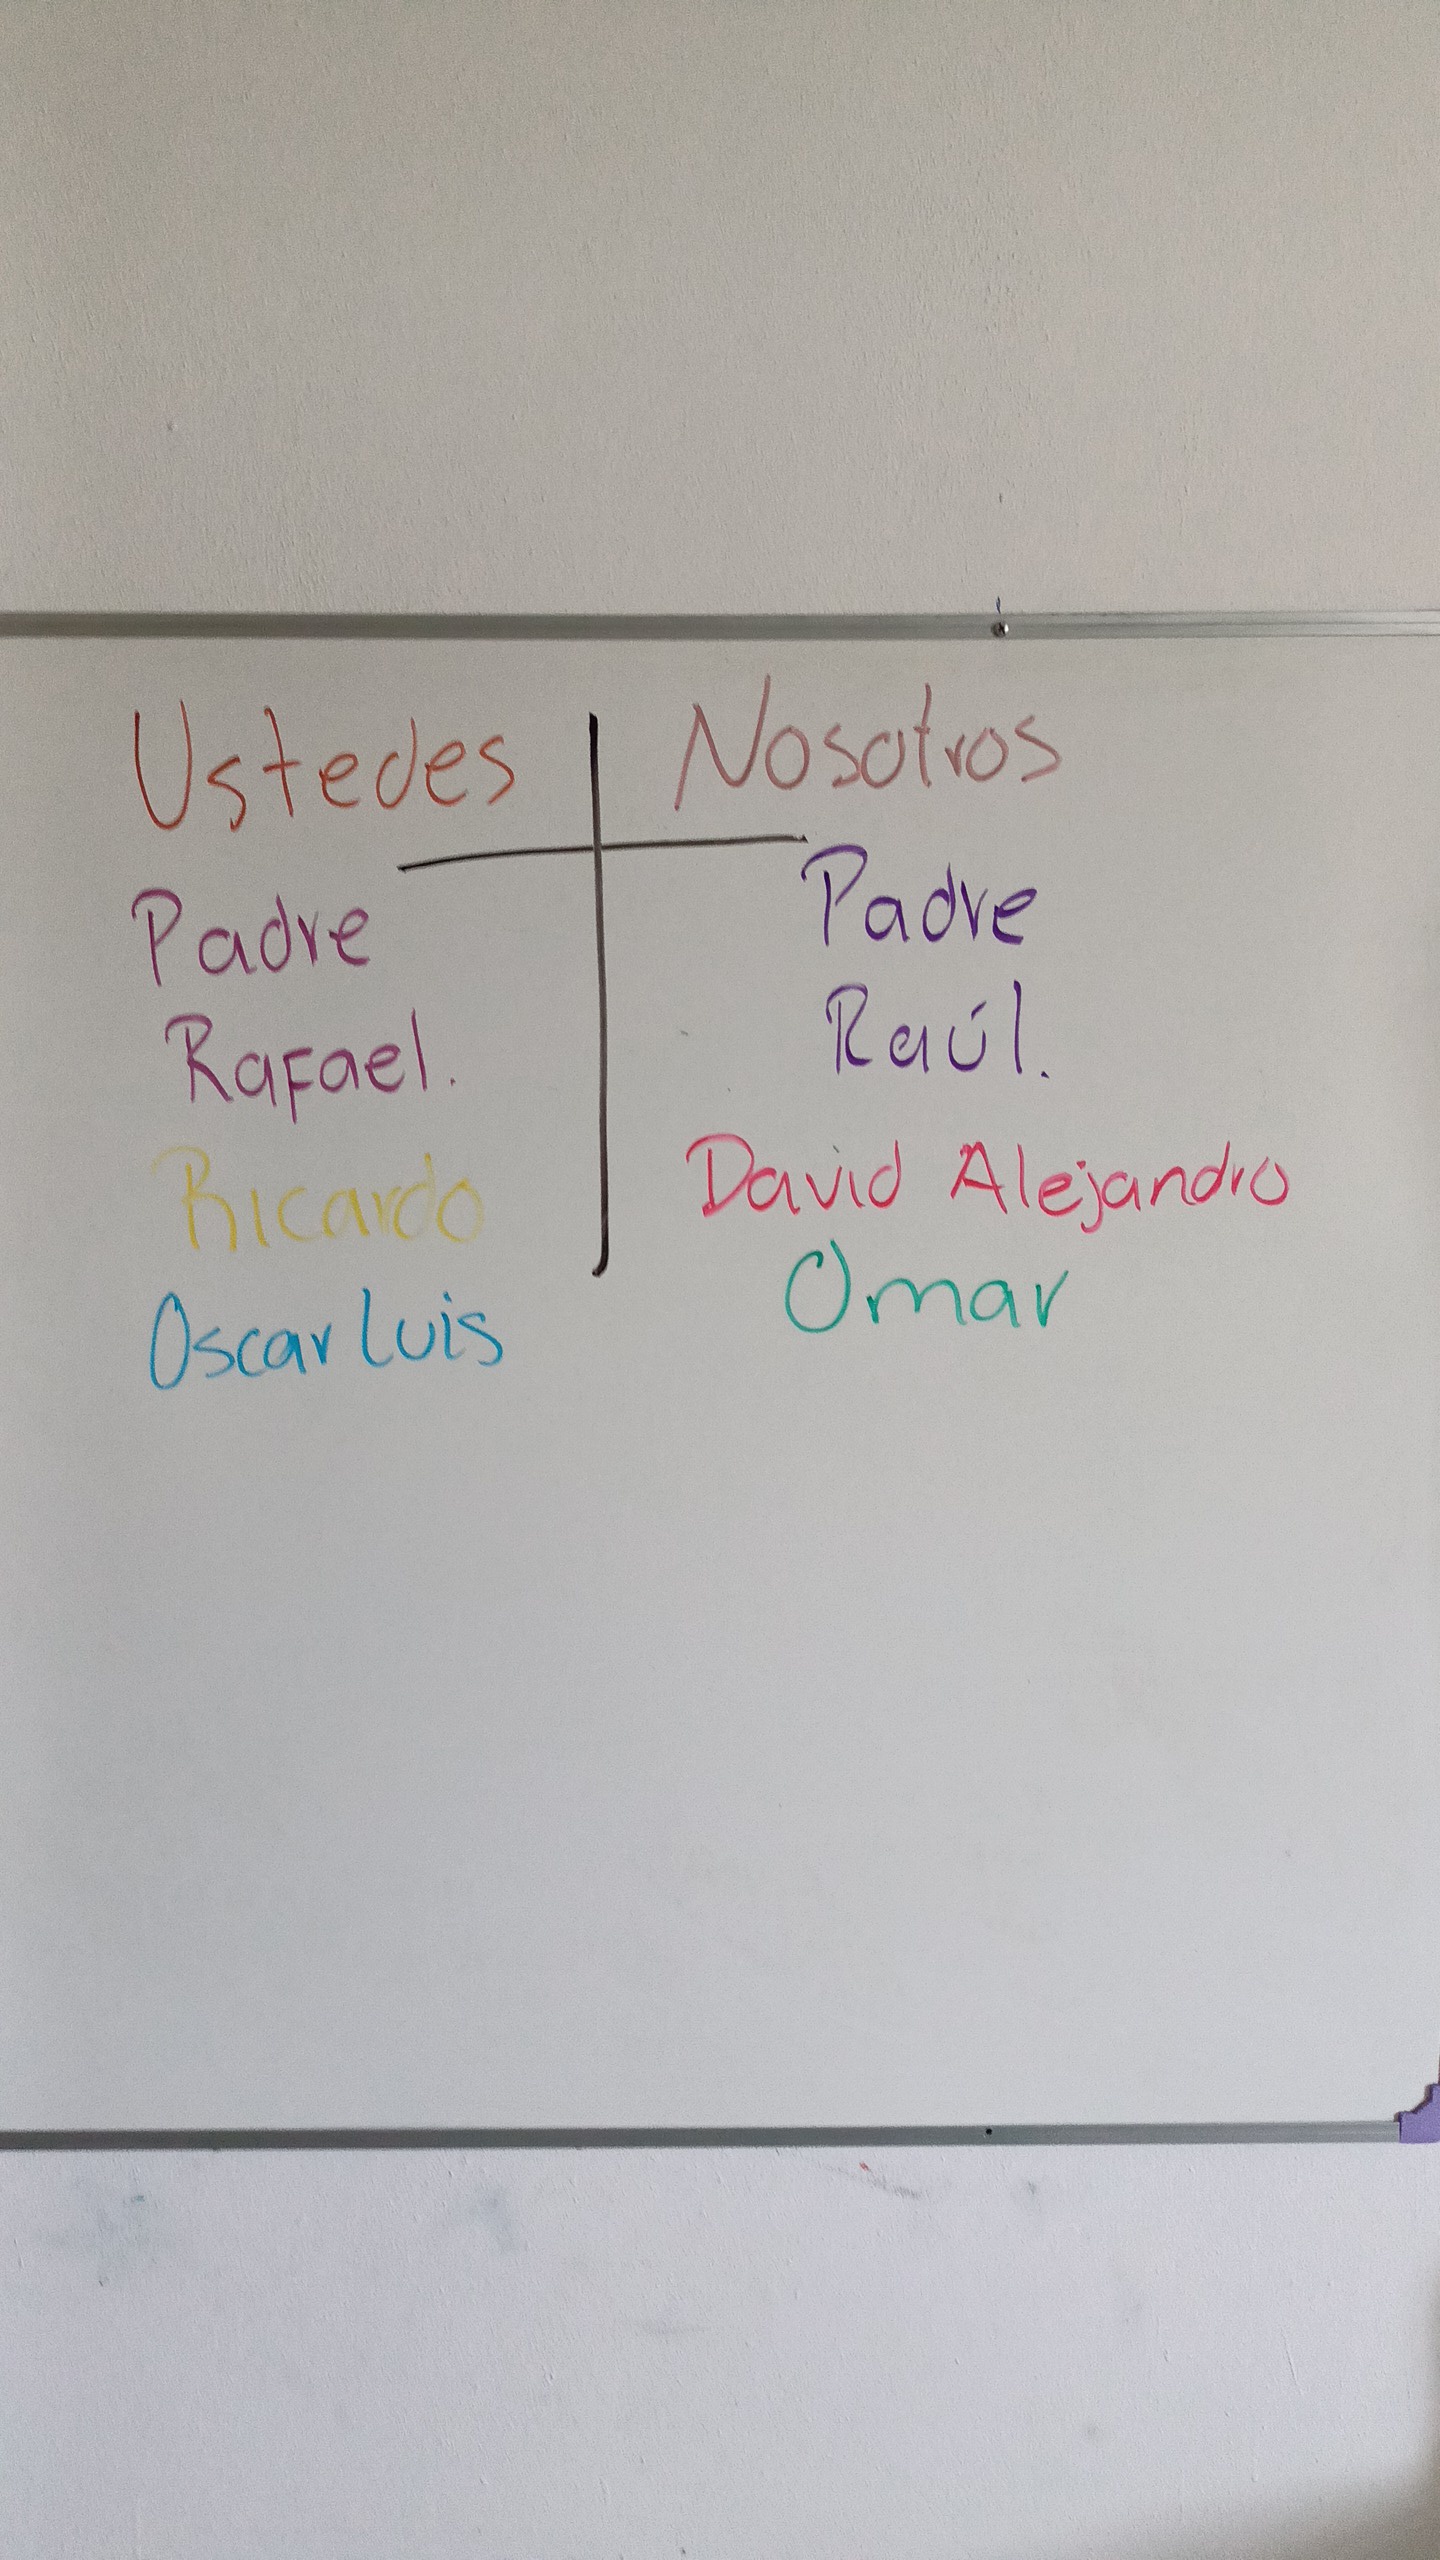 Ustedes
Padre
Rafael.
Ricardo
Oscar Luis
Nosotros
Padre
Raúl.
David Alejandro
Omar